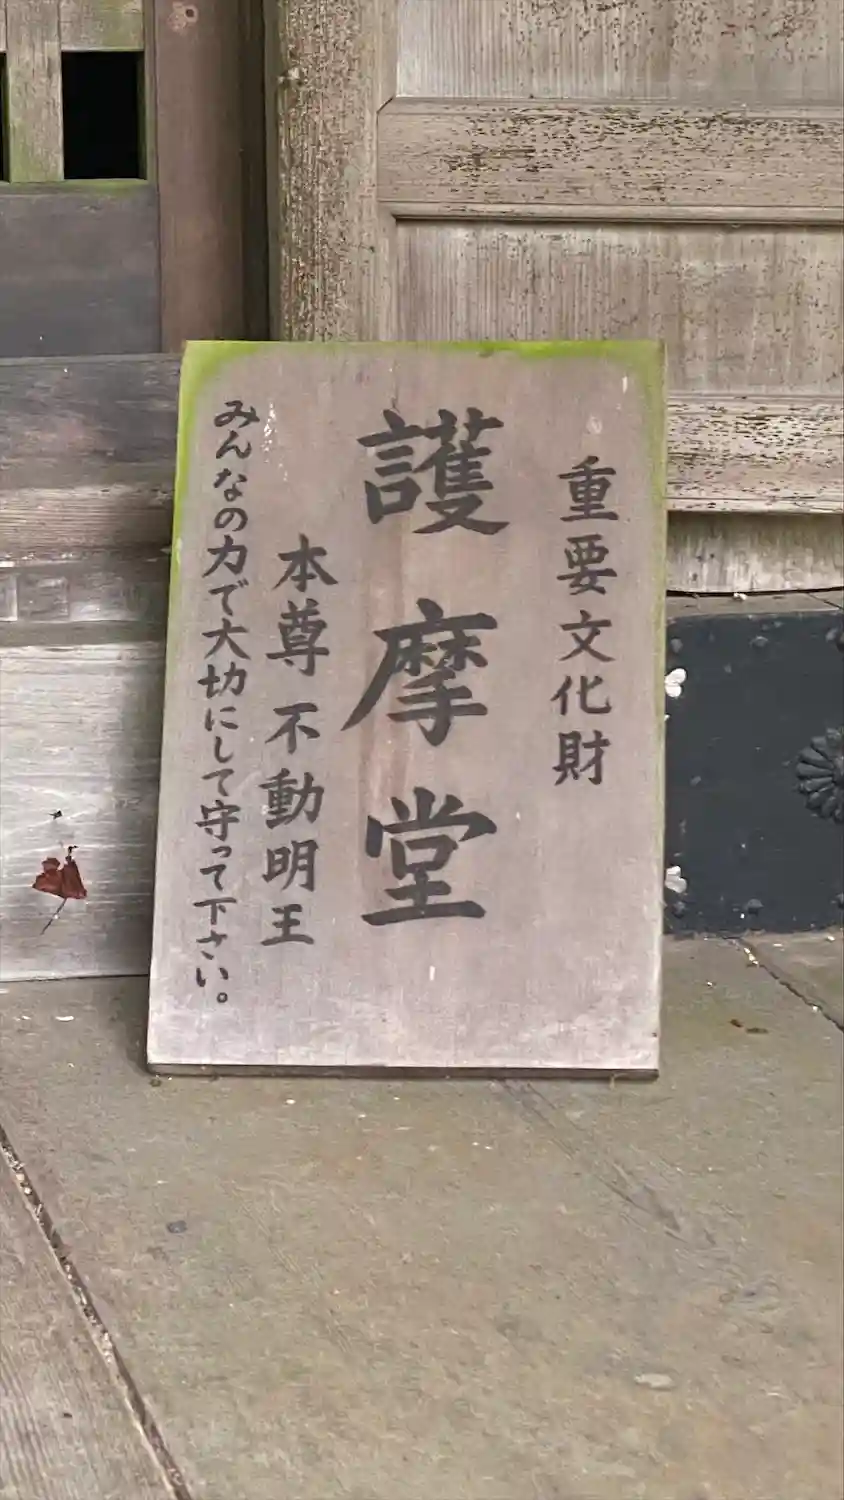 重要文化財
護摩堂
本尊不動明王
みんなの力で大切にして守って下さい。